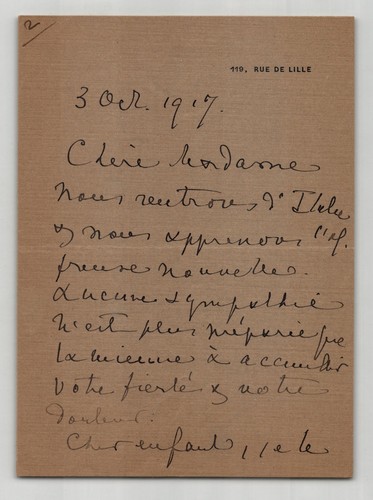 2
119, RUE DE LILLE
3 Oct. 1917.
Chère Madame
nous rentrons d'Italie
& nous apprenons l'af
freuse nouvelle.
Aucune sympathie
n'est plus préparée que
la mienne à accueillir
votre fierté & votre
douleur.
Cher enfant, je le